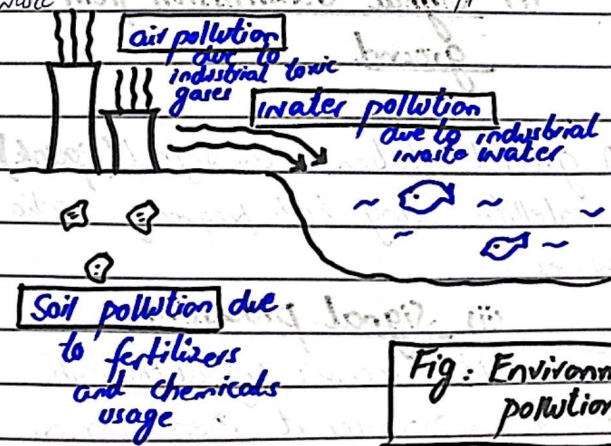 air pollution
due to
industrial toxic
gases
water pollution
due to industrial
waste water
Soil pollution due
to fertilizers
and chemicals
usage
Fig: Environm
pollution